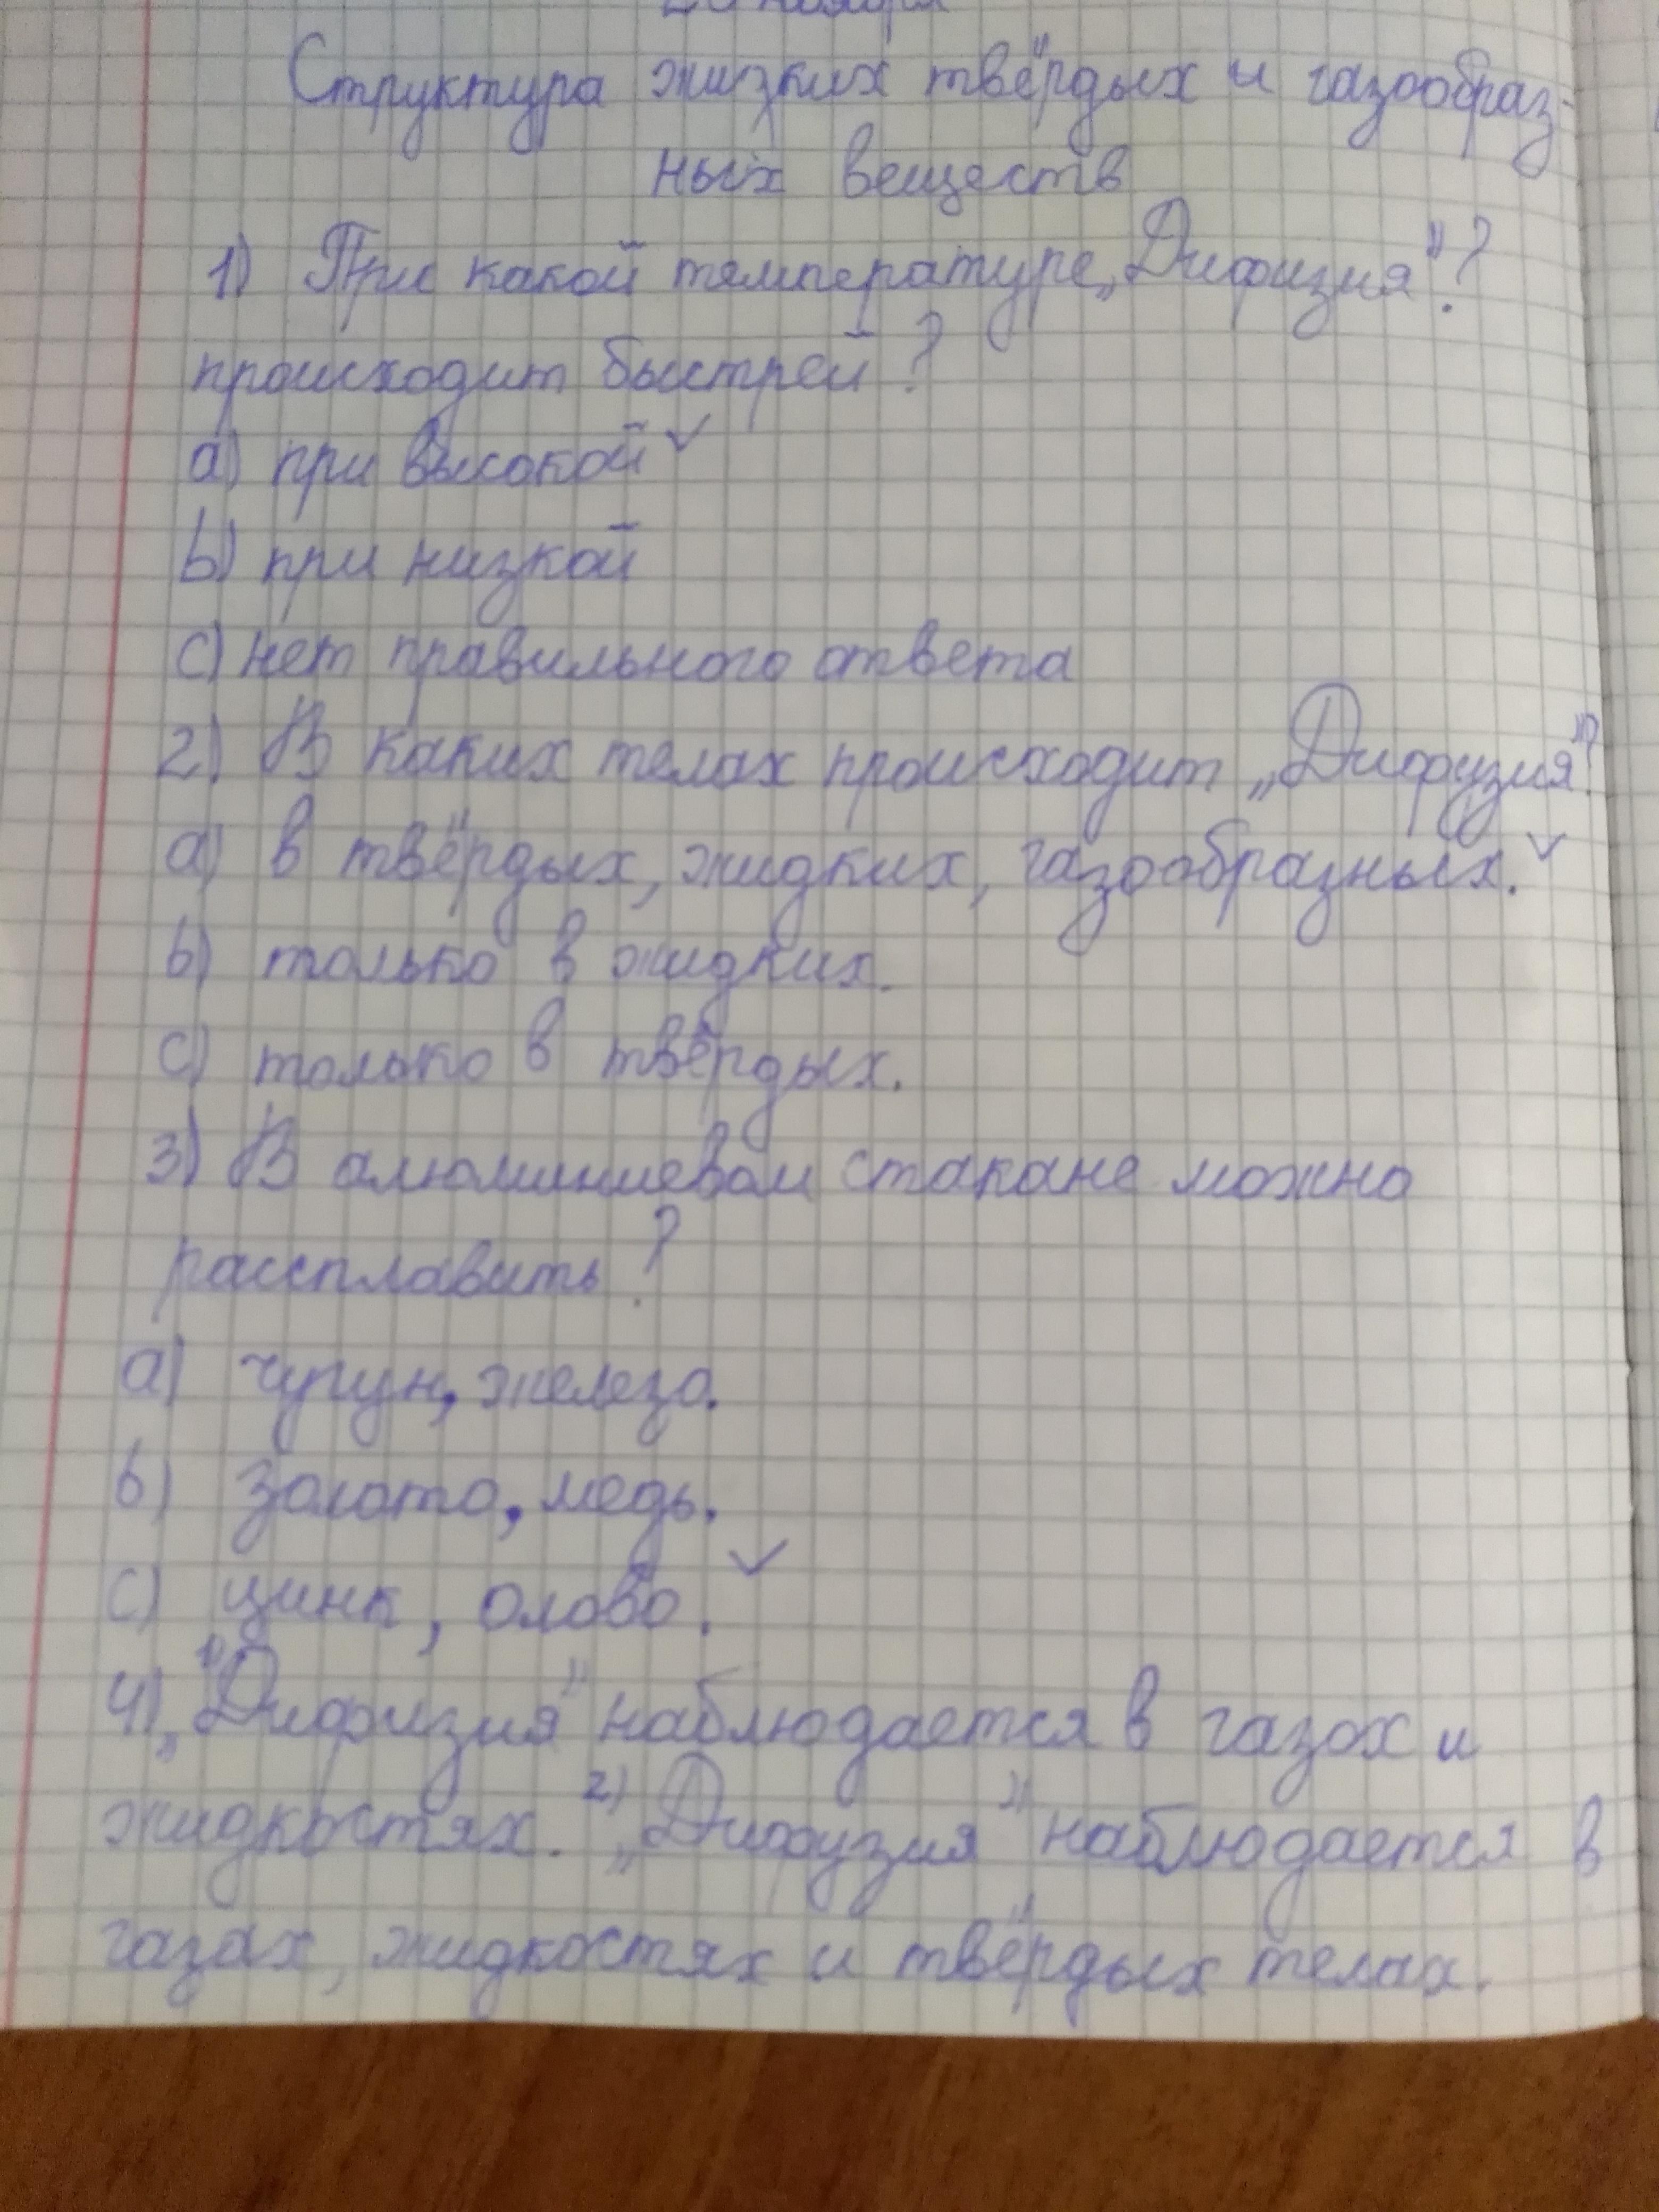 Структура жизких твёрдых и газообраз-
ных веществ
1) При какой температуре „Дифизия"?
происходит быстрей?
a) при высокой ✓
b) при низкой
c) нет правильного ответа
2) В каких телах происходит „Дифузия"?
a) в твёрдых, жидких, газообразных. ✓
b) только в жидких.
c) только в твёрдых.
3) В алюминиевом стакане можно
рассплавить?
a) чугун, железо.
b) золото, медь.
c) цинк, олово. ✓
4) 1) „Дифизия" наблюдается в газох и
жидкостях. 2) „Дифузия" наблюдается в
газах, жидкостях и твёрдых телах.